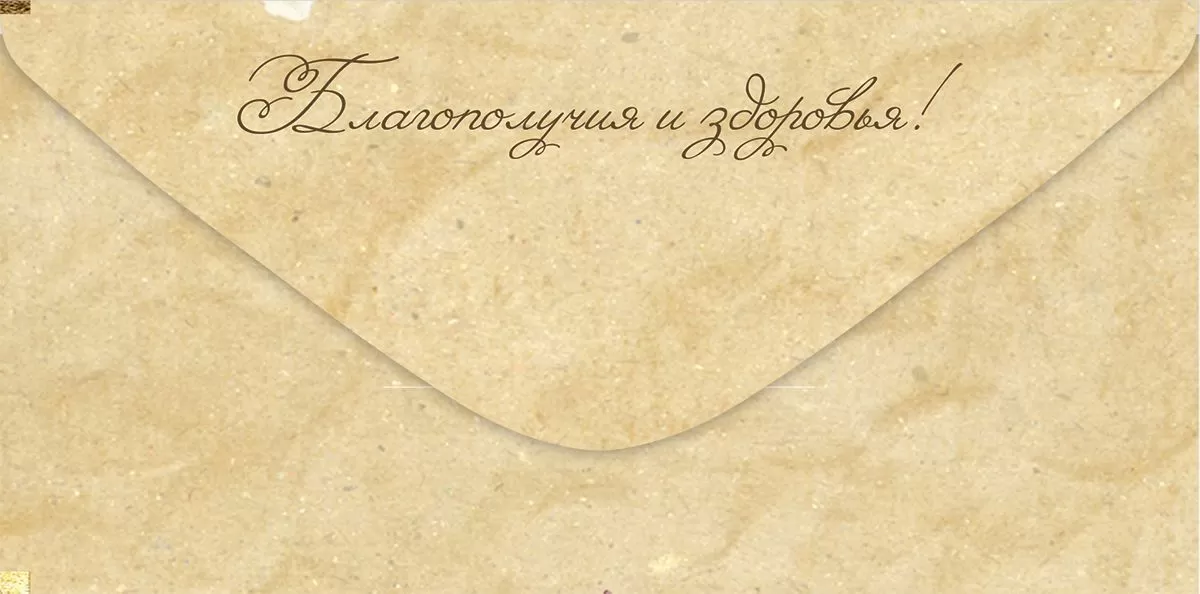 Благополучия и здоровья!